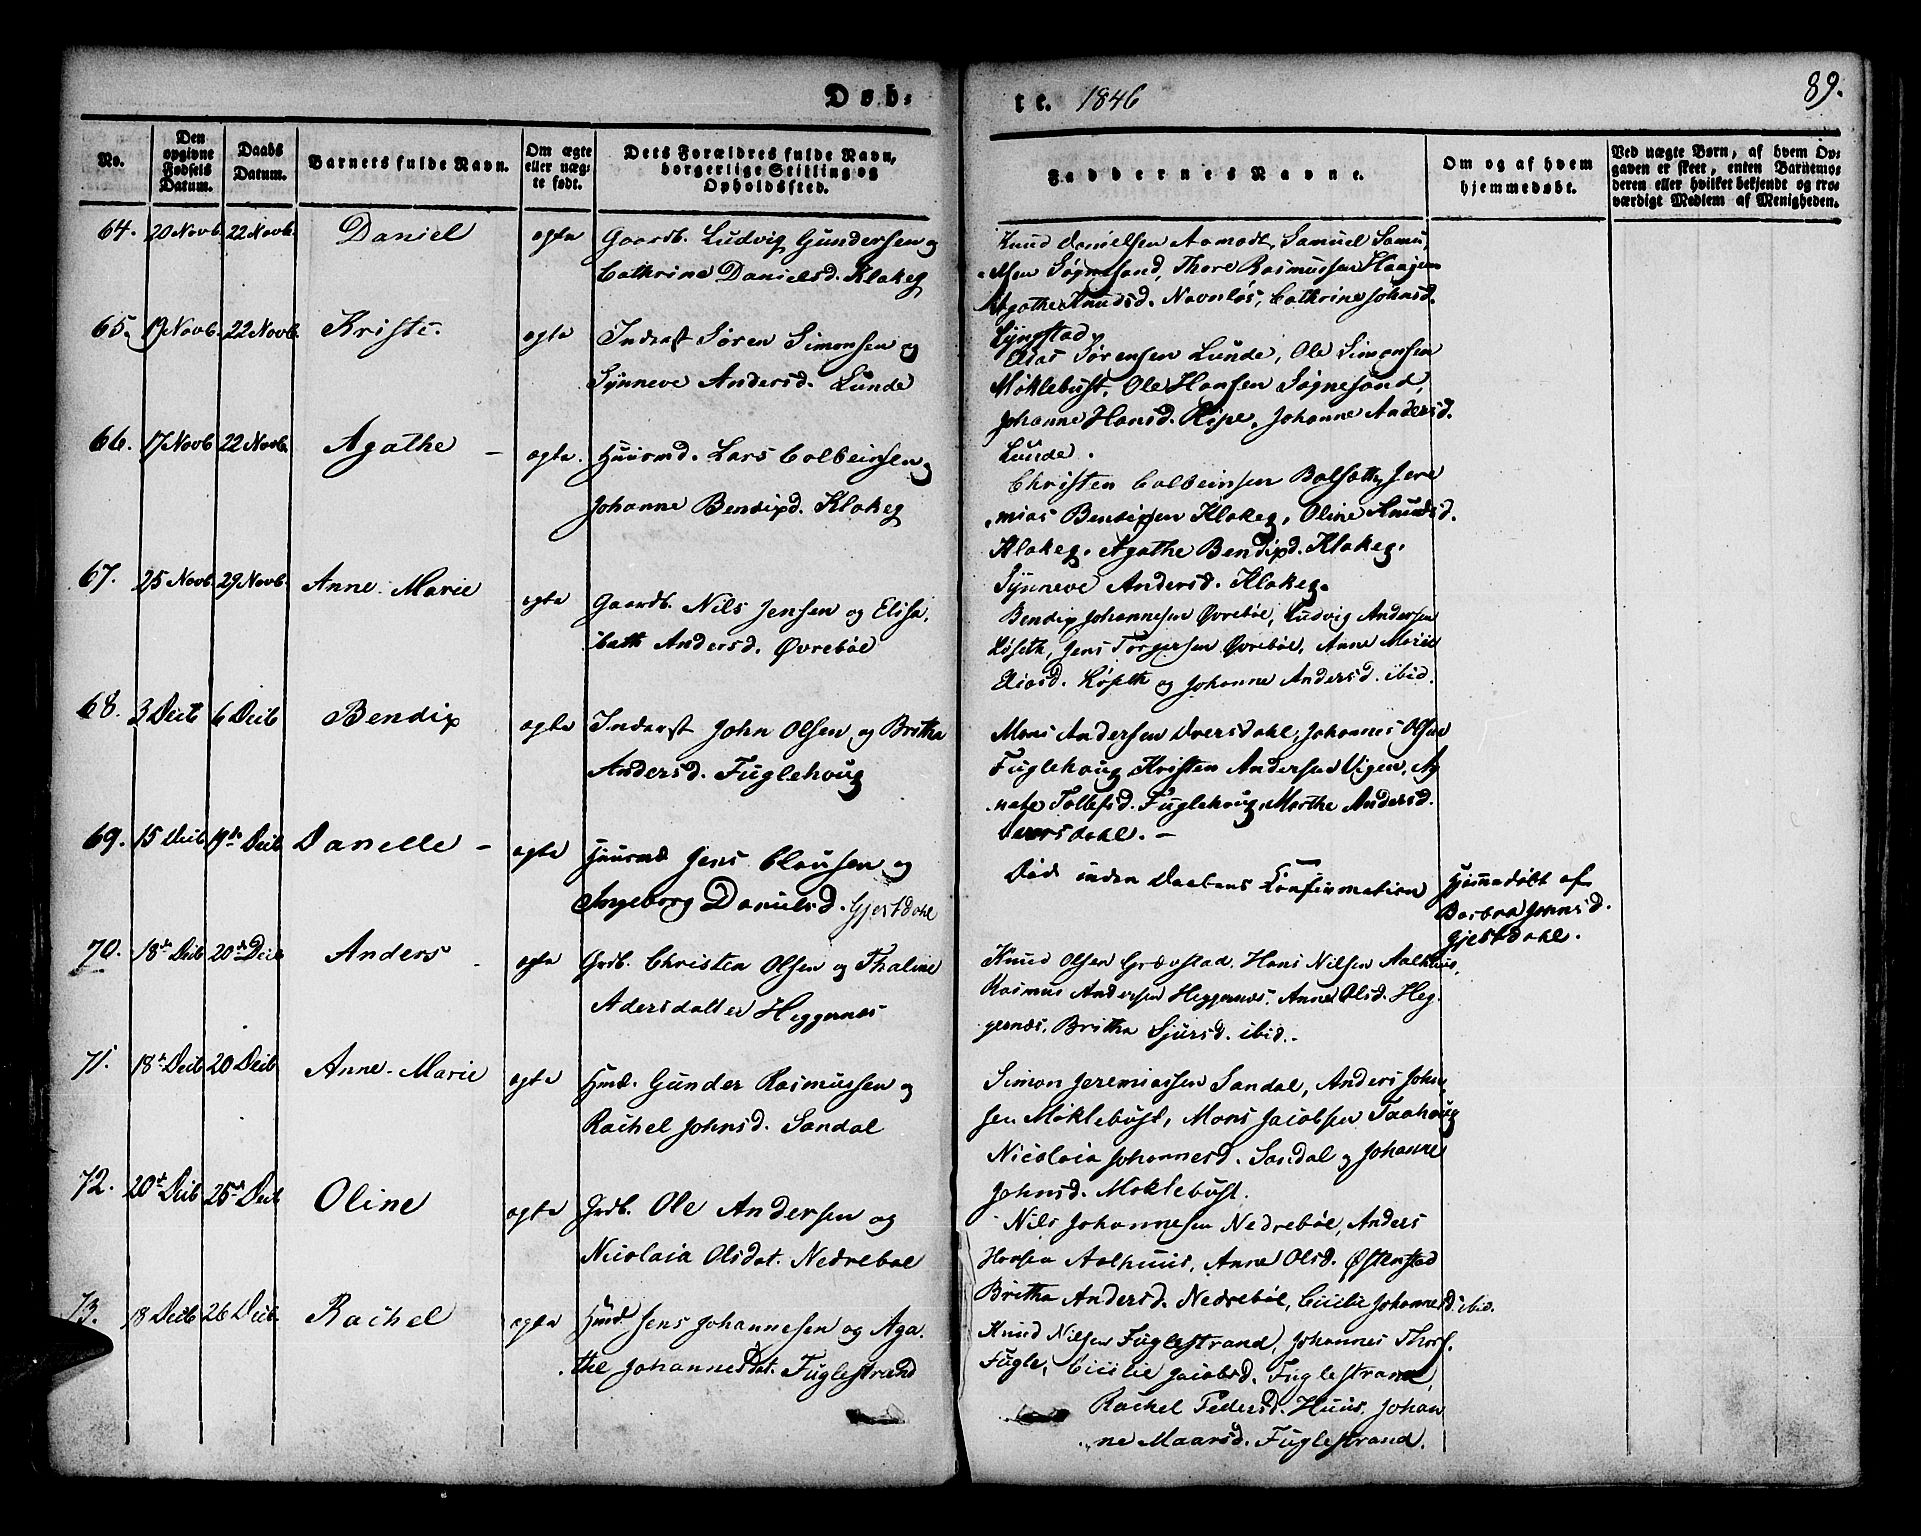 Døb-
te. 1846
89.
No.
Den opgivne Fødsels Datum.
Daabs Datum.
Barnets fulde Navn.
Om ægte eller uægte født.
Dets Forældres fulde Navn, borgerlige Stilling og Opholdssted.
Faddernes Navne.
Om og af hvem hjemmedøbt.
Ved uægte Børn, af hvem Opgaven er skeet, enten Barnemoderen eller hvilket bekjendt og troværdigt Medlem af Menigheden.
64. 20 Novb. 22 Novb. Daniel ægte Gaardb. Ludvig Gundersen og
Cathrine Danielsd. Klakeg
Knud Danielsen Aamodt, Samuel Samu-
elsen Søgnesand, Thore Rasmussen Haajem
Agathe Knudsd. Navnløs, Cathrine Johnsd.
Lyngstad
65. 19 Novb. 22 Novb. Kristi. ægte Inderst Søren Simonsen og
Synneve Andersd. Lunde
Elias Sørensen Lunde, Ole Simonsen
Møklebust, Ole Hansen Søgnesand,
Johanne Hansd. Ripe, Johanne Andersd.
Lunde.
66. 17 Novb. 22 Novb. Agathe - ægte. Huusmd. Lars Colbeinsen og
Johanne Bendixd. Klakeg
Christen Colbeinsen Bolsæth, Jere
mias Bendixsen Klakeg, Oline Knudsd.
Klakeg, Agathe Bendixd. Klakeg.
Synneve Andersd. Klakeg.
67. 25 Novb. 29 Novb. Anne-Marie ægte Gaardb. Nils Jensen og Elisa-
beth Andersd. Øvrebøe
Bendix Johannesen Øvrebøe, Ludvig Andersen
Løseth, Jens Torgersen Øvrebøe, Anne Marie
Eliasd. Løseth og Johanne Andersd. ibid.
68. 3 Decb 6 Decb Bendix ægte Inderst John Olsen og Britha
Andersd. Fuglehoug
Mons Andersen Dversdahl, Johannes Olsen
Fuglehoug, Kristen Andersen Vigen, Ag
nete Tollefsd. Fuglehoug, Marthe Andersd.
Dversdahl. -
69. 15 Decb 19de Decb Danelle - ægte Huusmd Jens Clausen og
Ingeborg Danielsd. Gjestdahl
Død inden Daabens Confirmation
Hjemmedøbt af
Barbra Johnsd.
Gjestdahl.
70. 18de Decb 20de Decb Anders - ægte Grdb. Christen Olsen og Thaline
Adersdatter Heggernes
Knud Olsen Grævstad, Hans Nilsen Aalhuus,
Rasmus Andersen Heggernæs, Anne Olsd. Heg
gernæs, Britha Sjursd. ibid..
71. 18de Decb 20 Decb Anne-Marie ægte Hmd. Gunder Rasmussen og
Rachel Johnsd. Sandal
Simon Jeremiassen Sandal, Anders John
sen Møklebust, Mons Jacobsen Taahoug
Nicolaia Johannesd. Sandal og Johanne
Johnsd. Møklebust.
72. 20de Decb 25de Decb Oline ægte Grdb. Ole Andersen og
Nicolaia Olsdat. Nedrebøe
Nils Johannesen Nedrebøe, Anders
Hansen Aalhuus, Anne Olsd. Østenstad
Britha Andersd. Nedrebøe, Cicilie Johannesd. ibid.
73. 18 Decb 26 Decb. Rachel ægte Hmd. Jens Johannesen og Aga-
the Johannesdat. Fuglestrand
Knud Nilsen Fuglestrand, Johannes Thors.
Fugle, Cicilie Jacobsd. Fuglestrand,
Rachel Pedersd. Huus, Johan
ne Maarsd. Fuglestrand.